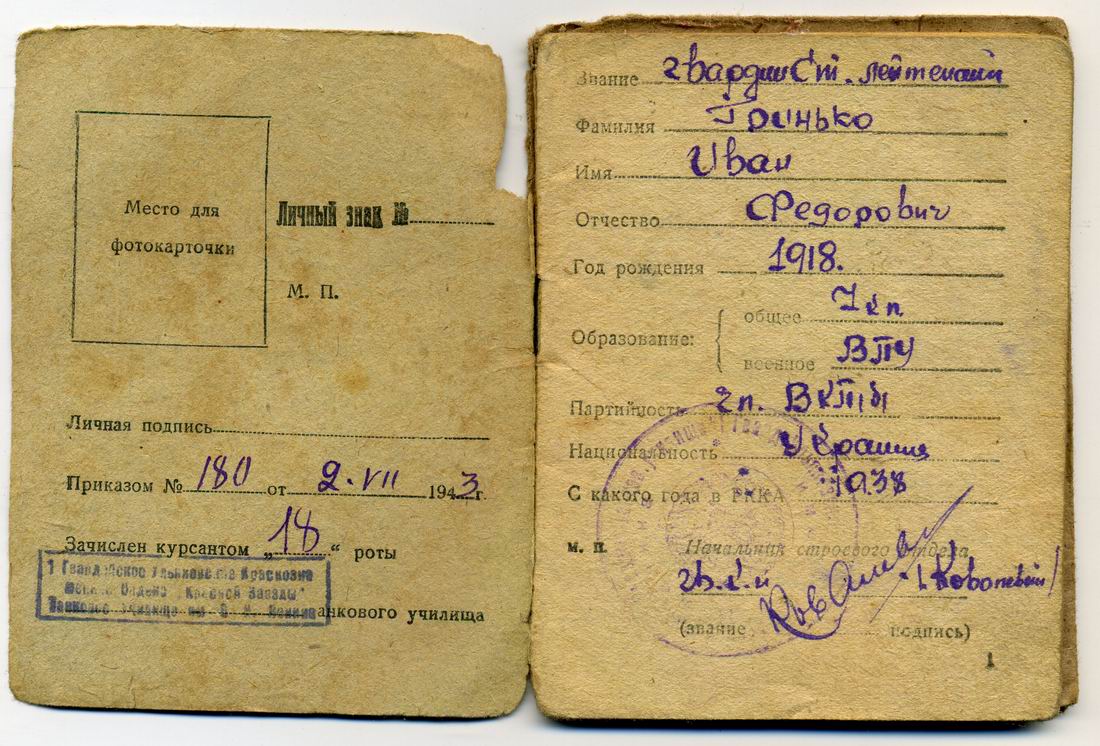 Место для
фотокарточки
Личный знак №
М. П.
Личная подпись
Приказом № 180 от 2.VII 1943г.
Зачислен курсантом „18“ роты
1 Гвардейское Ульяновское Краснозна
Ордена „Красной Звезды"
Танковое Училище им.
анкового училища
Звание гвардии Ст. лейтенант
Фамилия Гринько
Имя Иван
Отчество Федорович
Год рождения 1918.
Образование:
общее 7 кл
военное ВПУ
Партийность чл. ВКП/б/
Национальность Украинец
С какого года в РККА 1938
м. п. Начальник строевого отдела
(звание подпись)
1